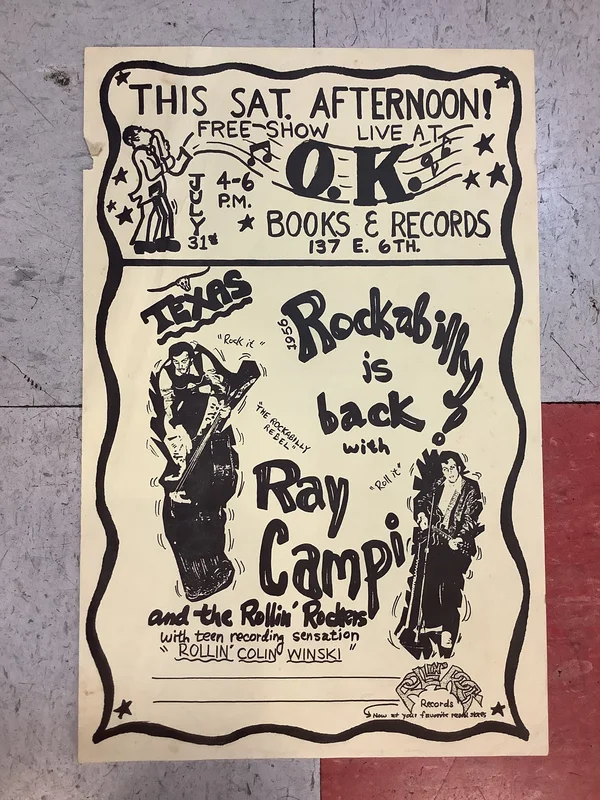 THIS SAT. AFTERNOON!
FREE-SHOW LIVE AT
O.K.
JULY 31st
4-6 P.M.
BOOKS & RECORDS
137 E. 6TH.
TEXAS
"Rock it"
1956
Rockabilly
is
back!
with
"THE ROCKABILLY REBEL"
"Roll it"
Ray
Campi
and the Rollin' Rockers
with teen recording sensation
"ROLLIN' COLIN WINSKI"
Records
Now at your favorite record stores